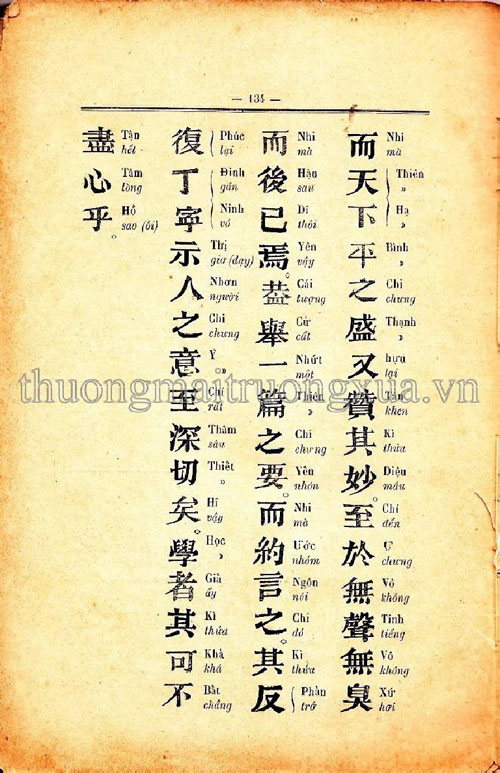 — 134 —
而天下平之盛又贊其妙。至於無聲無臭
Nhi mà
Thiên »
Hạ »
Bình »
Chi chưng
Thạnh »
hựu lại
Tán khen
Kì thửa
Diệu mầu
Chí đến
Ư chưng
Vô không
Tinh tiếng
Vô không
Xứ hơi
而後已焉。葢舉一篇之要。而約言之。其反
Nhi mà
Hậu sau
Dĩ thôi
Yên vậy
Cái tượng
Cử cất
Nhứt một
Thiên »
Chi chưng
Yêu nhón
Nhi mà
Ước nhóm
Ngôn nói
Chi đó
Kì thửa
Phản trở
復丁寧示人之意至深切矣。學者其可不
Phúc lại
Đinh gắn
Ninh vó
Thị giơ (dạy)
Nhơn người
Chi chưng
Ý »
Chí rất
Thâm sâu
Thiết »
Hĩ vậy
Học »
Giả ấy
Kì thửa
Khả khá
Bất chẳng
盡心乎。
Tận hết
Tâm lòng
Hồ sao (ôi)
thuongmaitruongxua.vn